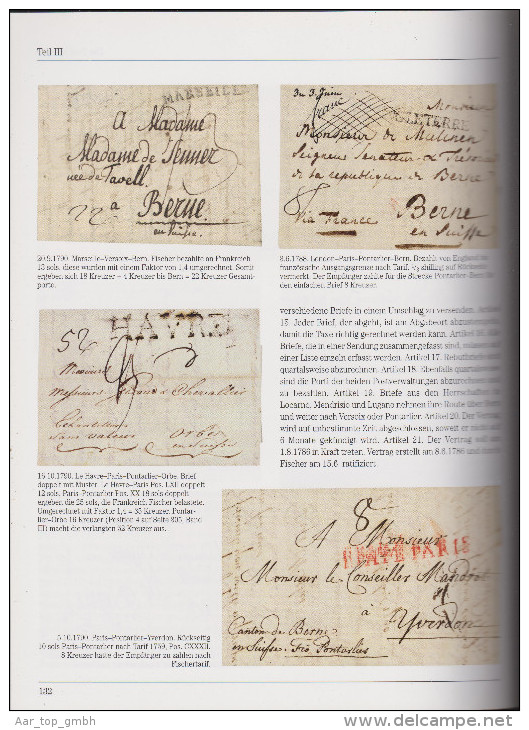 Teil III
MARSEILLE
A Madame
Madame de Jenner
née de Tavell.
22 a Berne.
en Suisse.
20.9.1790. Marseille–Versoix–Bern. Fischer bezahlte an Frankreich
13 sols, diese wurden mit einem Faktor von 1,4 umgerechnet. Somit
ergaben sich 18 Kreuzer + 4 Kreuzer bis Bern = 22 Kreuzer Gesamt-
porto.
Monsieur
Monsieur de Mulinen
Seigneur Senateur
de la republique de Berne
Berne
via France en Suisse
8.6.1788. London–Paris–Pontarlier–Bern. Bezahlt von England bis
französische Ausgangsgrenze nach Tarif. shilling auf Rückseite
vermerkt. Der Empfänger zahlte für die Strecke Pontarlier–Bern für
den einfachen Brief 8 Kreuzer.
HAVRE
52
Messieurs
Messieurs & Chevallier
Echantillon
sans valeur Orbe
en Suisse
15.10.1790. Le Havre–Paris–Pontarlier–Orbe. Brief
doppelt mit Muster. Le Havre–Paris Pos. LXII doppelt
12 sols. Paris–Pontarlier Pos. XX 18 sols doppelt
ergeben die 25 sols, die Frankreich Fischer belastete.
Umgerechnet mit Faktur 1,4 = 35 Kreuzer. Pontar-
lier–Orbe 16 Kreuzer (Position 4 auf Seite 305, Band
III) macht die verlangten 52 Kreuzer aus.
verschiedene Briefe in einem Umschlag zu versenden.
15. Jeder Brief, der abgeht, ist am Abgabeort
damit die Taxe richtig gerechnet werden kann. Artikel
Briefe, die in einer Sendung zusammengefasst sind,
einer Liste einzeln erfasst werden. Artikel 17.
quartalsweise abzurechnen. Artikel 18. Ebenfalls
sind die Porti der beiden Postverwaltungen abzurechnen
zu bezahlen. Artikel 19. Briefe aus den Herrschaften
Locarno, Mendrisio und Lugano nehmen ihre Route über
und weiter nach Versoix oder Pontarlier. Artikel 20. Der Vertrag
wird auf unbestimmte Zeit abgeschlossen, soweit er nicht
6 Monate gekündigt wird. Artikel 21. Der Vertrag
1.8.1786 in Kraft treten. Vertrag erstellt am 8.6.1786 und
Fischer am 15.6. ratifiziert.
8
A Monsieur
PARIS
Monsieur le Conseiller Mandrot
à
Yverdon
Canton de Berne
en Suisse. Pontarlier
5.10.1790. Paris–Pontarlier–Yverdon. Rückseitig
10 sols Paris–Pontarlier nach Tarif 1759, Pos. CXXXII.
8 Kreuzer hatte der Empfänger zu zahlen nach
Fischertarif.
132
Aar_top_gmbh
delcampe.net